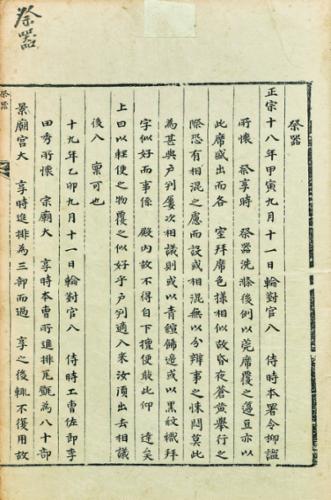 祭器
祭器
正宗十八年甲寅九月十一日輪對官入 侍時本署令柳諡
所懷 祭享時 祭器洗滌後例以莞席覆之籩豆亦以
此席盛出而各 室拜席色樣相似故昏夜蒼黃舉行之
際恐有相混之慮而設或相混無以分辨事之悚悶莫此
為甚與戶判屢次相議則或以青縇飾邊或以黑紋織拜
字似好而事係 殿內故不得自下擅便敢此仰 達矣
上曰以輕便之物覆之似好乎戶判適入來汝須出去相議
後入 稟可也
十九年乙卯九月十一日輪對官入 侍時工曹佐郎李
田秀所懷 宗廟大 享時本曹所進排瓦甑為八十部
景慕宮大 享時進排為三部而過 享之後輒不復用故
祭器